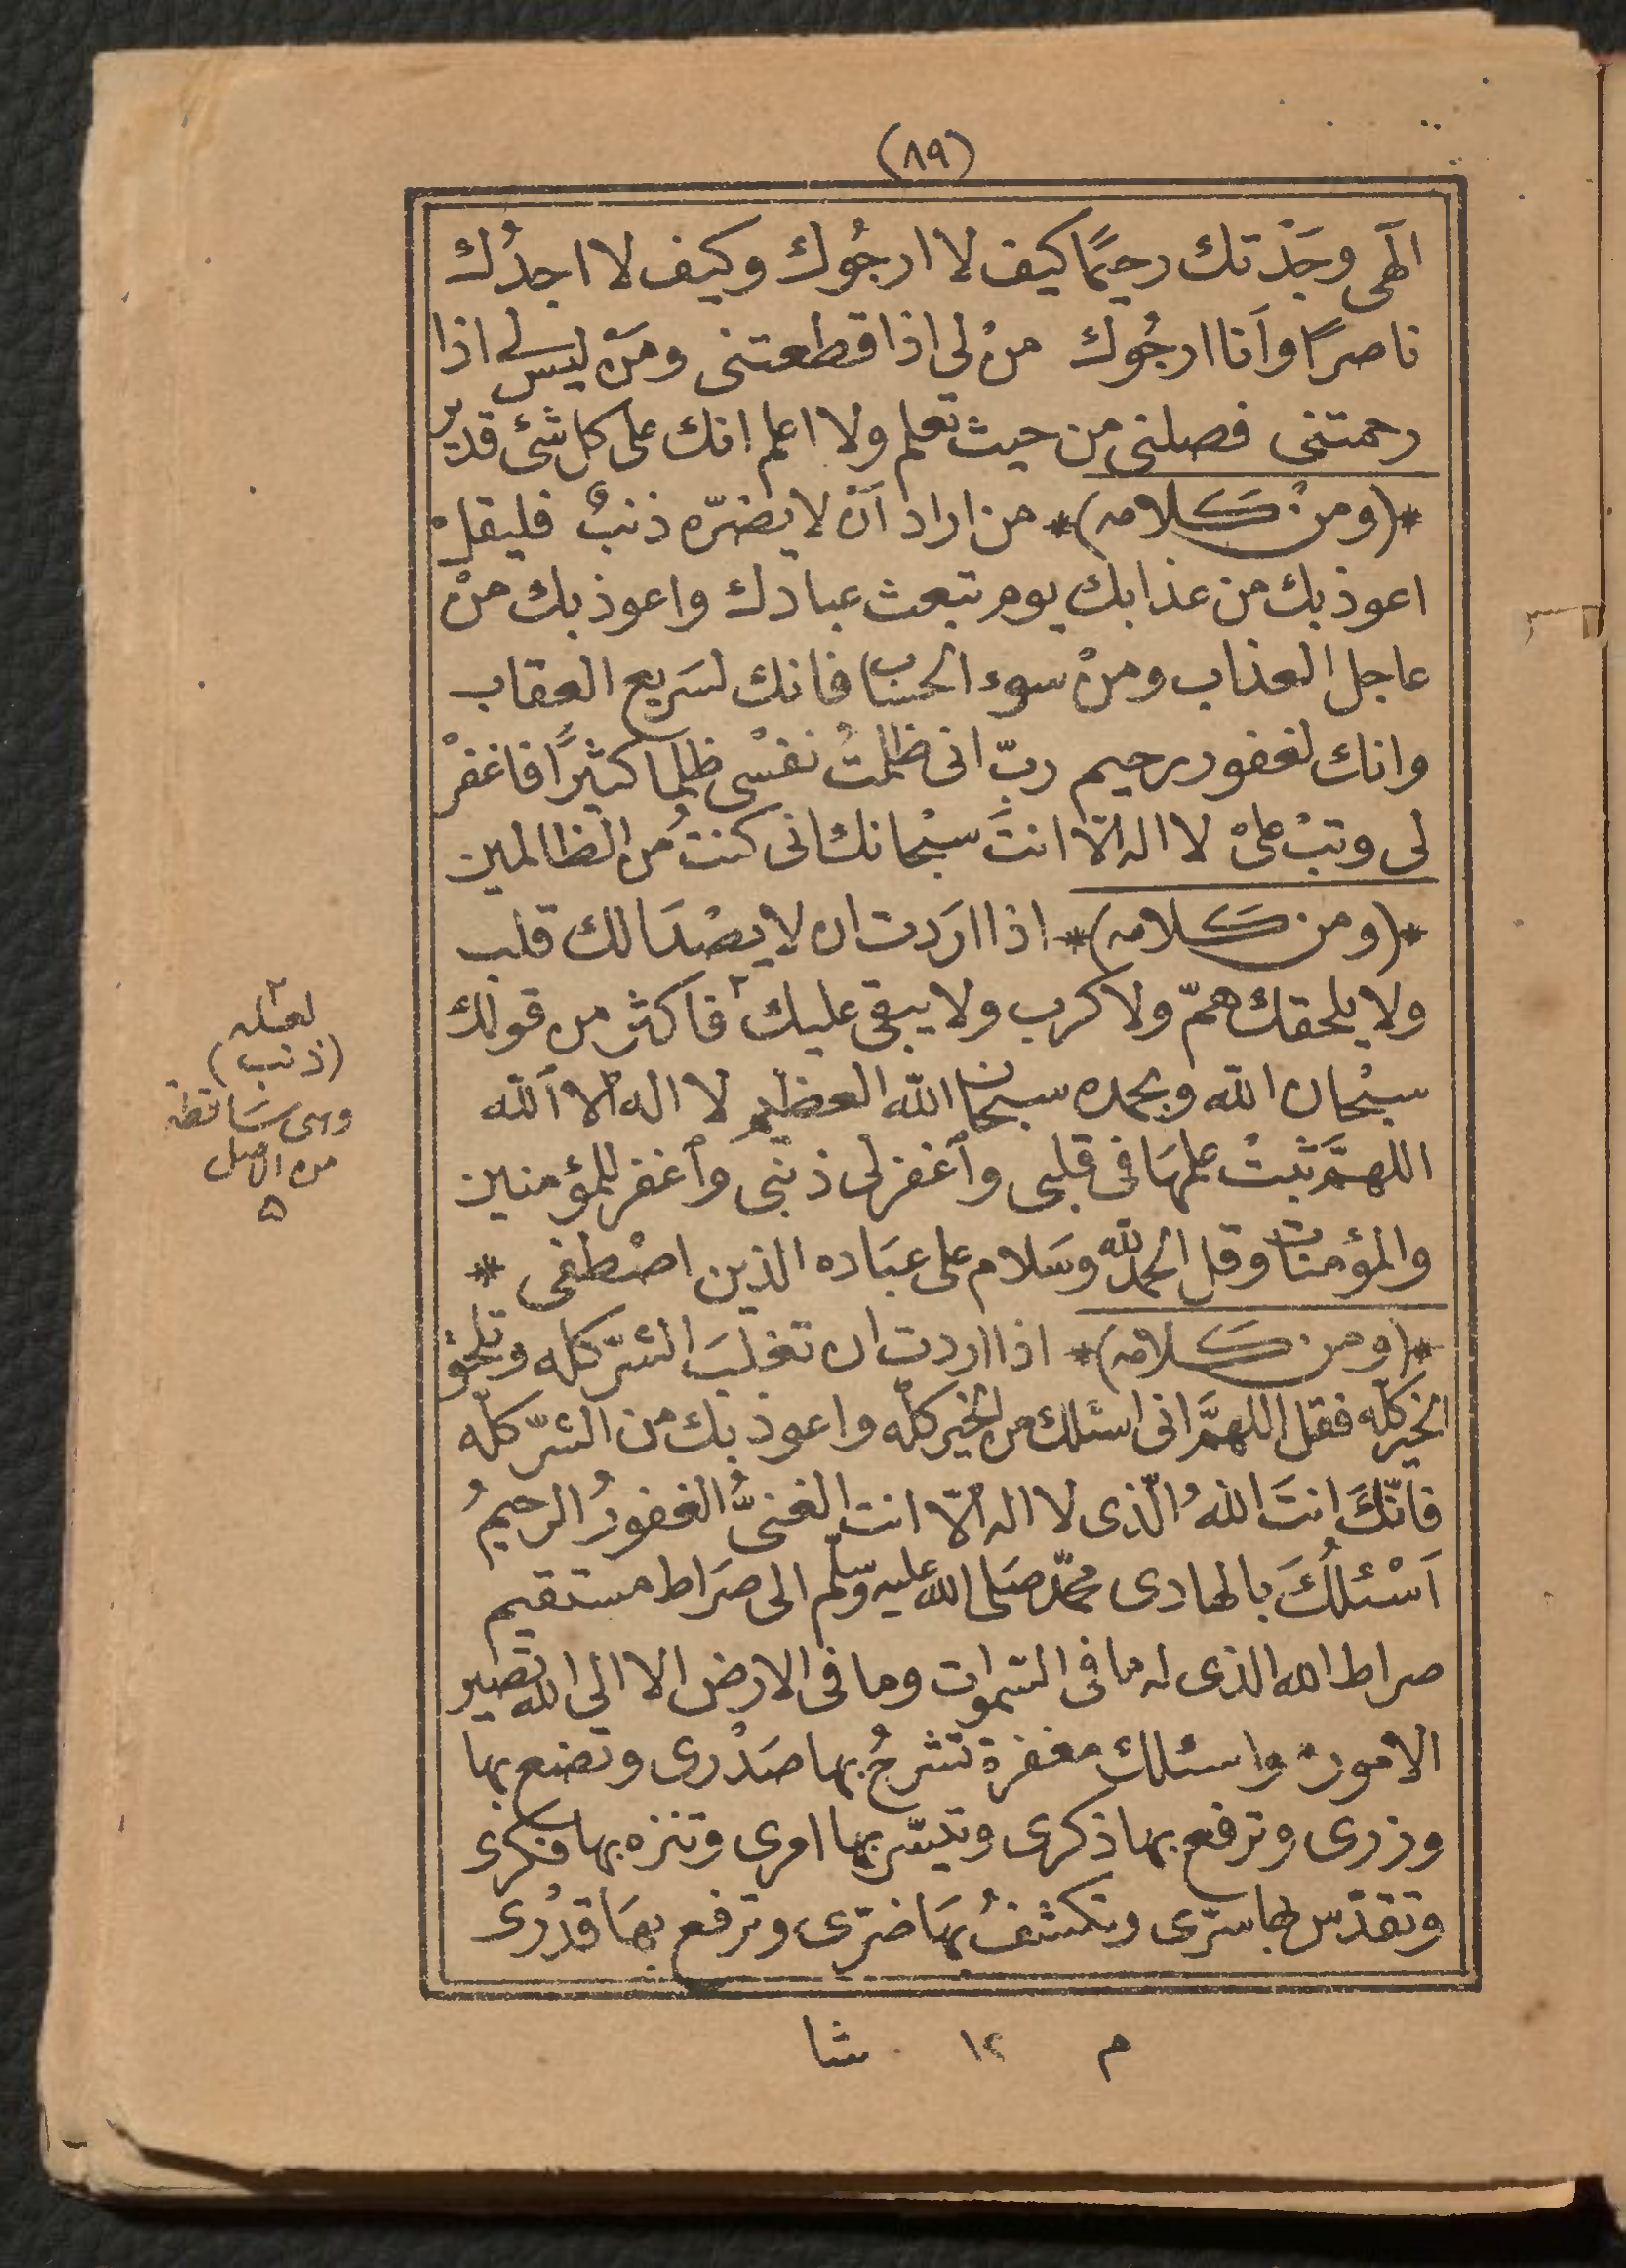 (٨٩)
الٓهى وجَدْتك رحيمًا كيف لا ارجُوك وكيف لا اجدُك
ناصرًا وأنا ارجُوك منْ لى اذا قطعتنى ومَنْ ليس لى اذا
رحمتنى فصلنى من حيث تعلم ولا اعلم انك على كل شئ قدير
*(ومنْ كَلامه)* من اراد أنْ لا يضرّه ذنبٌ فليقلْ
اعوذ بك من عذابك يوم تبعث عبادك واعوذ بك منْ
عاجل العذاب ومنْ سوء الحساب فانك لسَريع العقاب
وانك لغفور رحيم ربّ انى ظلمتُ نفسْى ظلما كثيرًا فاغفرْ
لى وتبْ علىْ لا اله الّا انتَ سبْحانك انى كنتُ من الظالمين
*(ومن كَلامه)* اذا ارَدت ان لا يصْدَا لك قلب
ولا يلحقك همّ ولا كرب ولا يبقى عليك ٢ فاكثر من قولك
سبْحان الله وبحمده سبحان الله العظيم لا اله الّا الله
اللهمَّ ثبتْ علمهَا فى قلبى وٱغفر لى ذنبى وٱغفر للمؤمنين
والمؤمنات وقل الحمد لله وسَلام على عبَاده الذين اصْطفى *
*(ومن كَلامه)* اذا اردت ان تغلبَ الشرّ كله وتلحق
الخير كلّه فقل اللهمَّ انى اسئلك من الخير كلّه واعوذ بك من الشرّ كلّه
فانّكَ انتَ اللهُ الّذى لا اله الّا انت الغنىُّ الغفورُ الرحيمُ
اَسْئلُكَ بالهادى محمّد صَلى الله عليه وسلّم الى صرَاط مستقيم
صراط الله الذى له ما فى السّموات وما فى الارض الا الى الله تصير
الامور، واسئلك مغفرة تشرحُ بها صَدْرى وتضع بها
وزرى وترفع بها ذكرى وتيسّر بها امرى وتنزه بها فكرى
وتقدّس بها سرّى وتكشفُ بهَا ضرّى وترفع بهَا قدْرى
٢
لعله
(ذنب)
وهى سَاقطة
من الاصل
ه
م ١٢ شا